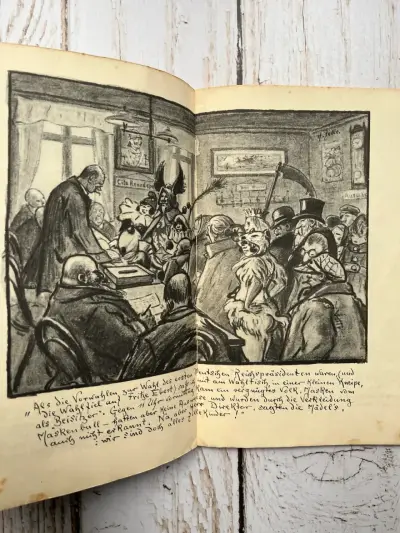 Als die Vorwahlen zur Wahl des ersten deutschen Reichspräsidenten waren, (und
"Die Wahl fiel auf Fritze Ebert) saß ich mit am Wahltisch in einer kleinen Kneipe,
als Beisitzer. Gegen 11 Uhr vormittag kam ein vergnügtes Volk. Masken vom
Maskenball – hatten aber keine und wurden durch die Verkleidung
auch nicht erkannt. Na, Herr Direktor, sagten die Mädels.
– wir sind doch alles Zille Kinder!"